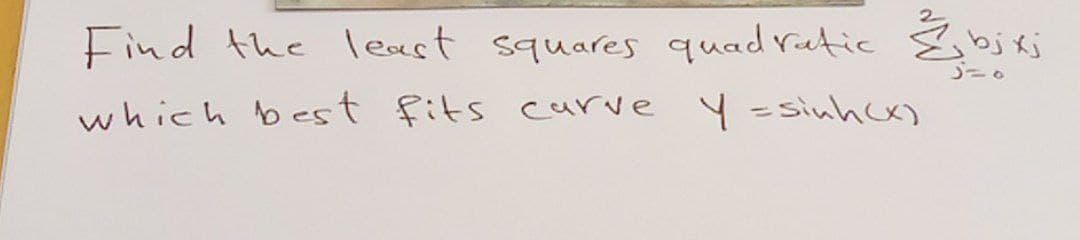 Find the least squares quadratic 2∑j=0 bj xj
which best fits curve y = sinh(x)